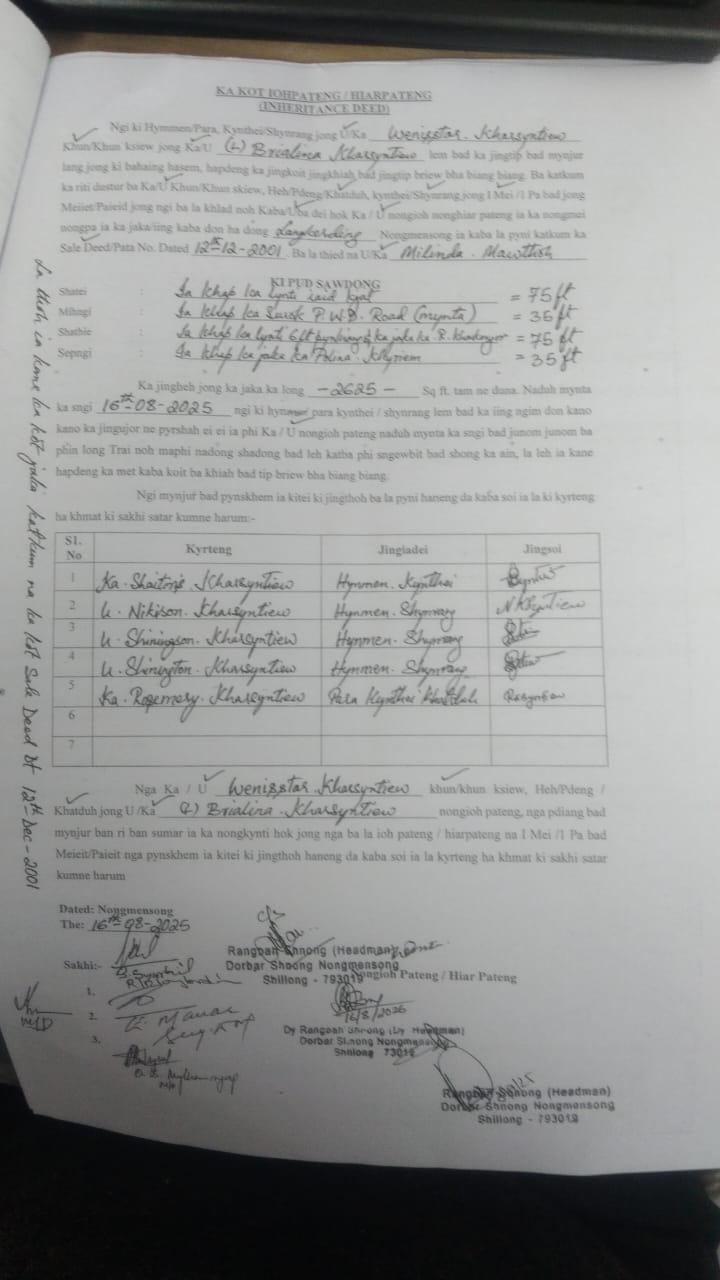 KA KOT IOHPATENG / HIARPATENG
(INHERITANCE DEED)
Ngi ki Hymmen/Para, Kynthei/Shynrang jong U/Ka Wenisstar Kharsyntiew
Khun/Khun ksiew jong Ka/U (L) Brialina Kharsyntiew lem bad ka jingtip bad mynjur
lang jong ki bahaing hasem, hapdeng ka jingkoit jingkhiah bad jingtip briew bha biang biang. Ba katkum
ka riti dustur ba Ka/U Khun/Khun skiew, Heh/Pdeng/Khatduh, kynthei/Shynrang jong I Mei /I Pa bad jong
Meiiet/Paieid jong ngi ba la khlad noh Kaba/Uba dei hok Ka / U nongioh nonghiar pateng ia ka nongmei
nongpa ia ka jaka/iing kaba don ha dong Langkerding Nongmensong ia kaba la pyni katkum ka
Sale Deed/Pata No. Dated 12th-12-2001. Ba la thied na U/Ka Milinda. Mawthoh
KI PUD SAWDONG
Shatei : Ia khap ka lynti raid kyal = 75 ft
Mihngi : Ia khap ka Surok P.W.D. Road (mynta) = 35 ft
Shathie : Ia khap ka lynti 6ft ka jaka ka R. = 75 ft
Sepngi : Ia khap ka jaka ka Polina. Khyriem = 35 ft
Ka jingheh jong ka jaka ka long -2625- Sq ft. tam ne duna. Naduh mynta
ka sngi 16th-08-2025 ngi ki hynmen para kynthei / shynrang lem bad ka iing ngim don kano
kano ka jingujor ne pyrshah ei ei ia phi Ka / U nongioh pateng naduh mynta ka sngi bad junom junom ba
phin long Trai noh maphi nadong shadong bad leh katba phi sngewbit bad shong ka ain, la leh ia kane
hapdeng ka met kaba koit ba khiah bad tip briew bha biang biang.
Ngi mynjur bad pynskhem ia kitei ki jingthoh ba la pyni haneng da kaba soi ia la ki kyrteng
ha khmat ki sakhi satar kumne harum:-
Sl. No Kyrteng Jingiadei Jingsoi
1 Ka. Shaitoris Kharsyntiew Hynmen. Kynthei
2 U. Nikison. Kharsyntiew Hynmen. Shynrang NKSyntiew
3 U. Shiningson. Kharsyntiew Hynmen. Shynrang
4 U. Shinington. Kharsyntiew Hynmen. Shynrang
5 Ka. Rosemery. Kharsyntiew Para Kynthei Khatduh
6
7
Nga Ka / U Wenisstar Kharsyntiew khun/khun ksiew, Heh/Pdeng /
Khatduh jong U /Ka (L) Brialina. Kharsyntiew nongioh pateng, nga pdiang bad
mynjur ban ri ban sumar ia ka nongkynti hok jong nga ba la ioh pateng / hiarpateng na I Mei /I Pa bad
Meieit/Paieit nga pynskhem ia kitei ki jingthoh haneng da kaba soi ia la kyrteng ha khmat ki sakhi satar
kumne harum
Ia thoh ia kane ka kot katkum na ka kot Sale Deed Dt 12th-Dec-2001
Dated: Nongmensong
The: 16th-08-2025
Rangbah Shnong (Headman)
Dorbar Shnong Nongmensong
Shillong - 793019
Nongioh Pateng / Hiar Pateng
Sakhi:-
1.
2.
3.
Dy Rangbah Shnong (Dy Headman)
Dorbar Shnong Nongmensong
Shillong 73019
Rangbah Shnong (Headman)
Dorbar Shnong Nongmensong
Shillong - 793019